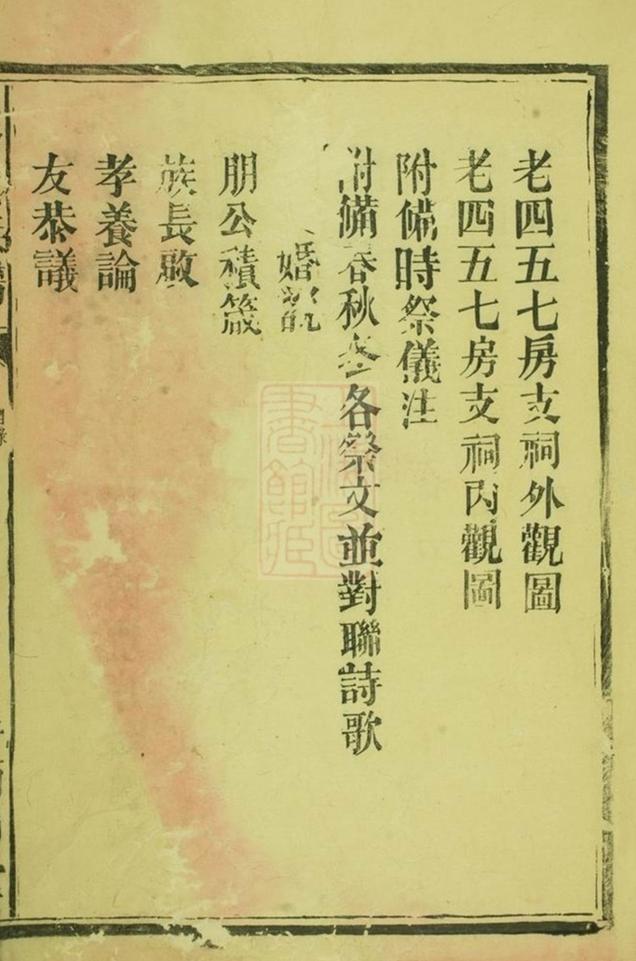 老四五七房支祠外觀圖
老四五七房支祠內觀圖
附備時祭儀注
附備春秋冬各祭文並對聯詩歌
婚
朋公積箴
族長啟
孝養論
友恭議
目錄